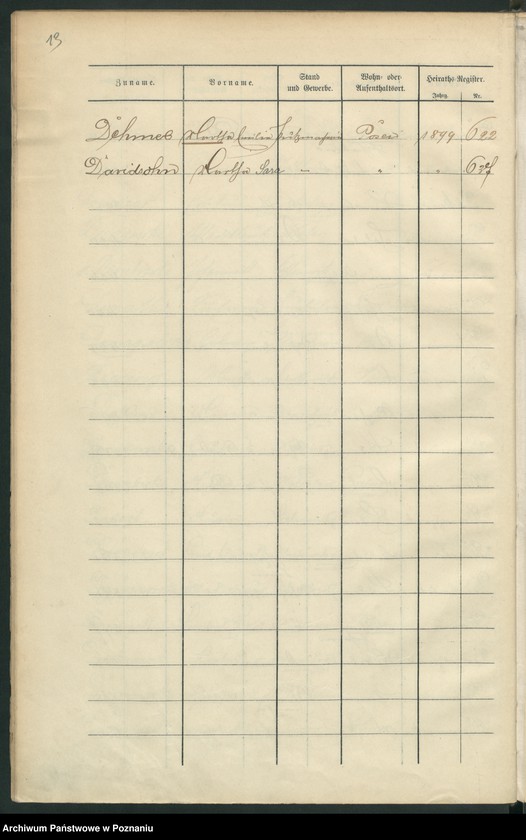 13
Zuname. Vorname. Stand und Gewerbe. Wohn- oder Aufenthaltsort. Heiraths-Register.
Jahrg. Nr.
Döhmes Martha Emilie Posen 1899 622
Davidsohn Martha Sara – " "
Archiwum Państwowe w Poznaniu